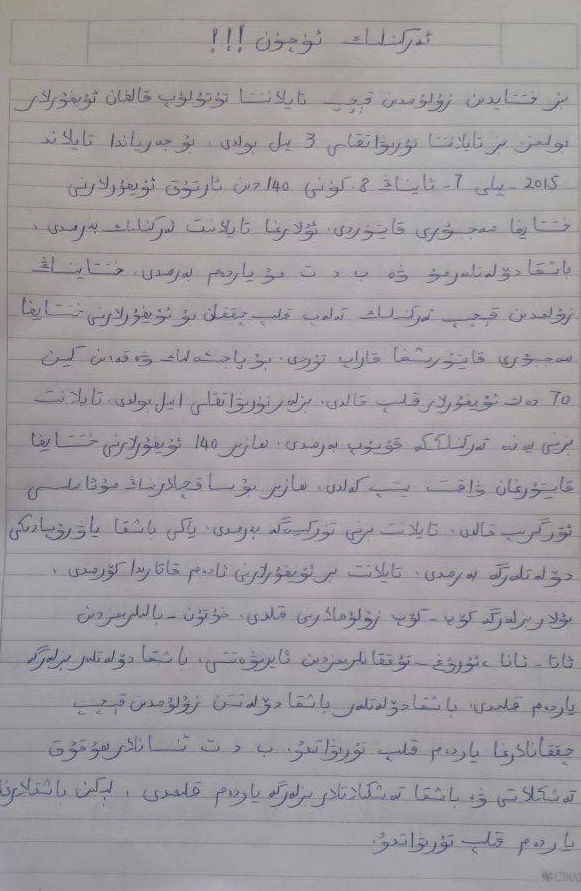 ئەركىنلىك ئۈچۈن !!!
بىز خىتتايدىن زۇلۇمدىن قېچىپ تايلانتتا تۇتۇلۇپ قالغان ئۇيغۇرلار
بولىمىز. بىز تايلانتتا تۇرىۋاتقىلى 3 يىل بولدى، بۇ جەرياندا تايلاند
2015 - يىلى 7 - ئاينىڭ 8. كۈنى 140 دىن ئارتۇق ئۇيغۇرلارنى
خىتتايغا مەجبۇرى قايتۇردى. ئۇلارغا تايلانت ئەركىنلىك بەرمىدى،
باشقا دۆلەتلەرمۇ ۋە ب د ت مۇ ياردەم بەرمىدى. خىتتاينىڭ
زۇلمىدىن قېچىپ ئەركىنلىك تەلەپ قىلىپ چىققان بۇ ئۇيغۇرلارنى خىتتايغا
مەجبۇرى قايتۇرىشقا قاراپ تۇردى. بۇ پاجىئەلىك ۋەقەدىن كىيىن
70 دەك ئۇيغۇرلار قىلىپ قالدى. بىزلەر تۇرىۋاتقىلى 1 يىل بولدى. تايلانت
بىزنى يەنە ئەركىنلىككە قۇيۇپ بەرمىدى. ھازىر 140 ئۇيغۇرلارنى خىتتايغا
قايتۇرغان ۋاقىت يىتىپ كەلدى. ھازىر بۇ ساقچىلارنىڭ مۇئامىلىسى
ئۆزگىرىپ قالدى. تايلانت بىزنى تۈركىيىگە بەرمىدى. ياكى باشقا ياۋرۇپادىكى
دۆلەتلەرگە بەرمىدى. تايلانت بىز ئۇيغۇرلارنى ئادەم قاتارىدا كۆرمىدى،
بۇلار بىزلەرگە كۆپ - كۆپ زۇلۇملارنى قىلدى. خۇتۇن - بالىلىرىمىزدىن
ئاتا - ئانا، ئۇرۇغ - تۇققانلىرىمىزدىن ئايرىۋەتتى، باشقا دۆلەتلەر بىزلەرگە
ياردەم قىلمىدى. باشقا دۆلەتلەر باشقا دۆلەتتىن زۇلۇمدىن قېچىپ
چىققانلارغا ياردەم قىلىپ تۇرىۋاتىدۇ. ب د ت ئىنسانلار ھوقۇق
تەشكىلاتى ۋە باشقا تەشكىلاتلار بىزلەرگە ياردەم قىلمىدى، لېكىن باشقىلارغا
ياردەم قىلىپ تۇرىۋاتىدۇ.